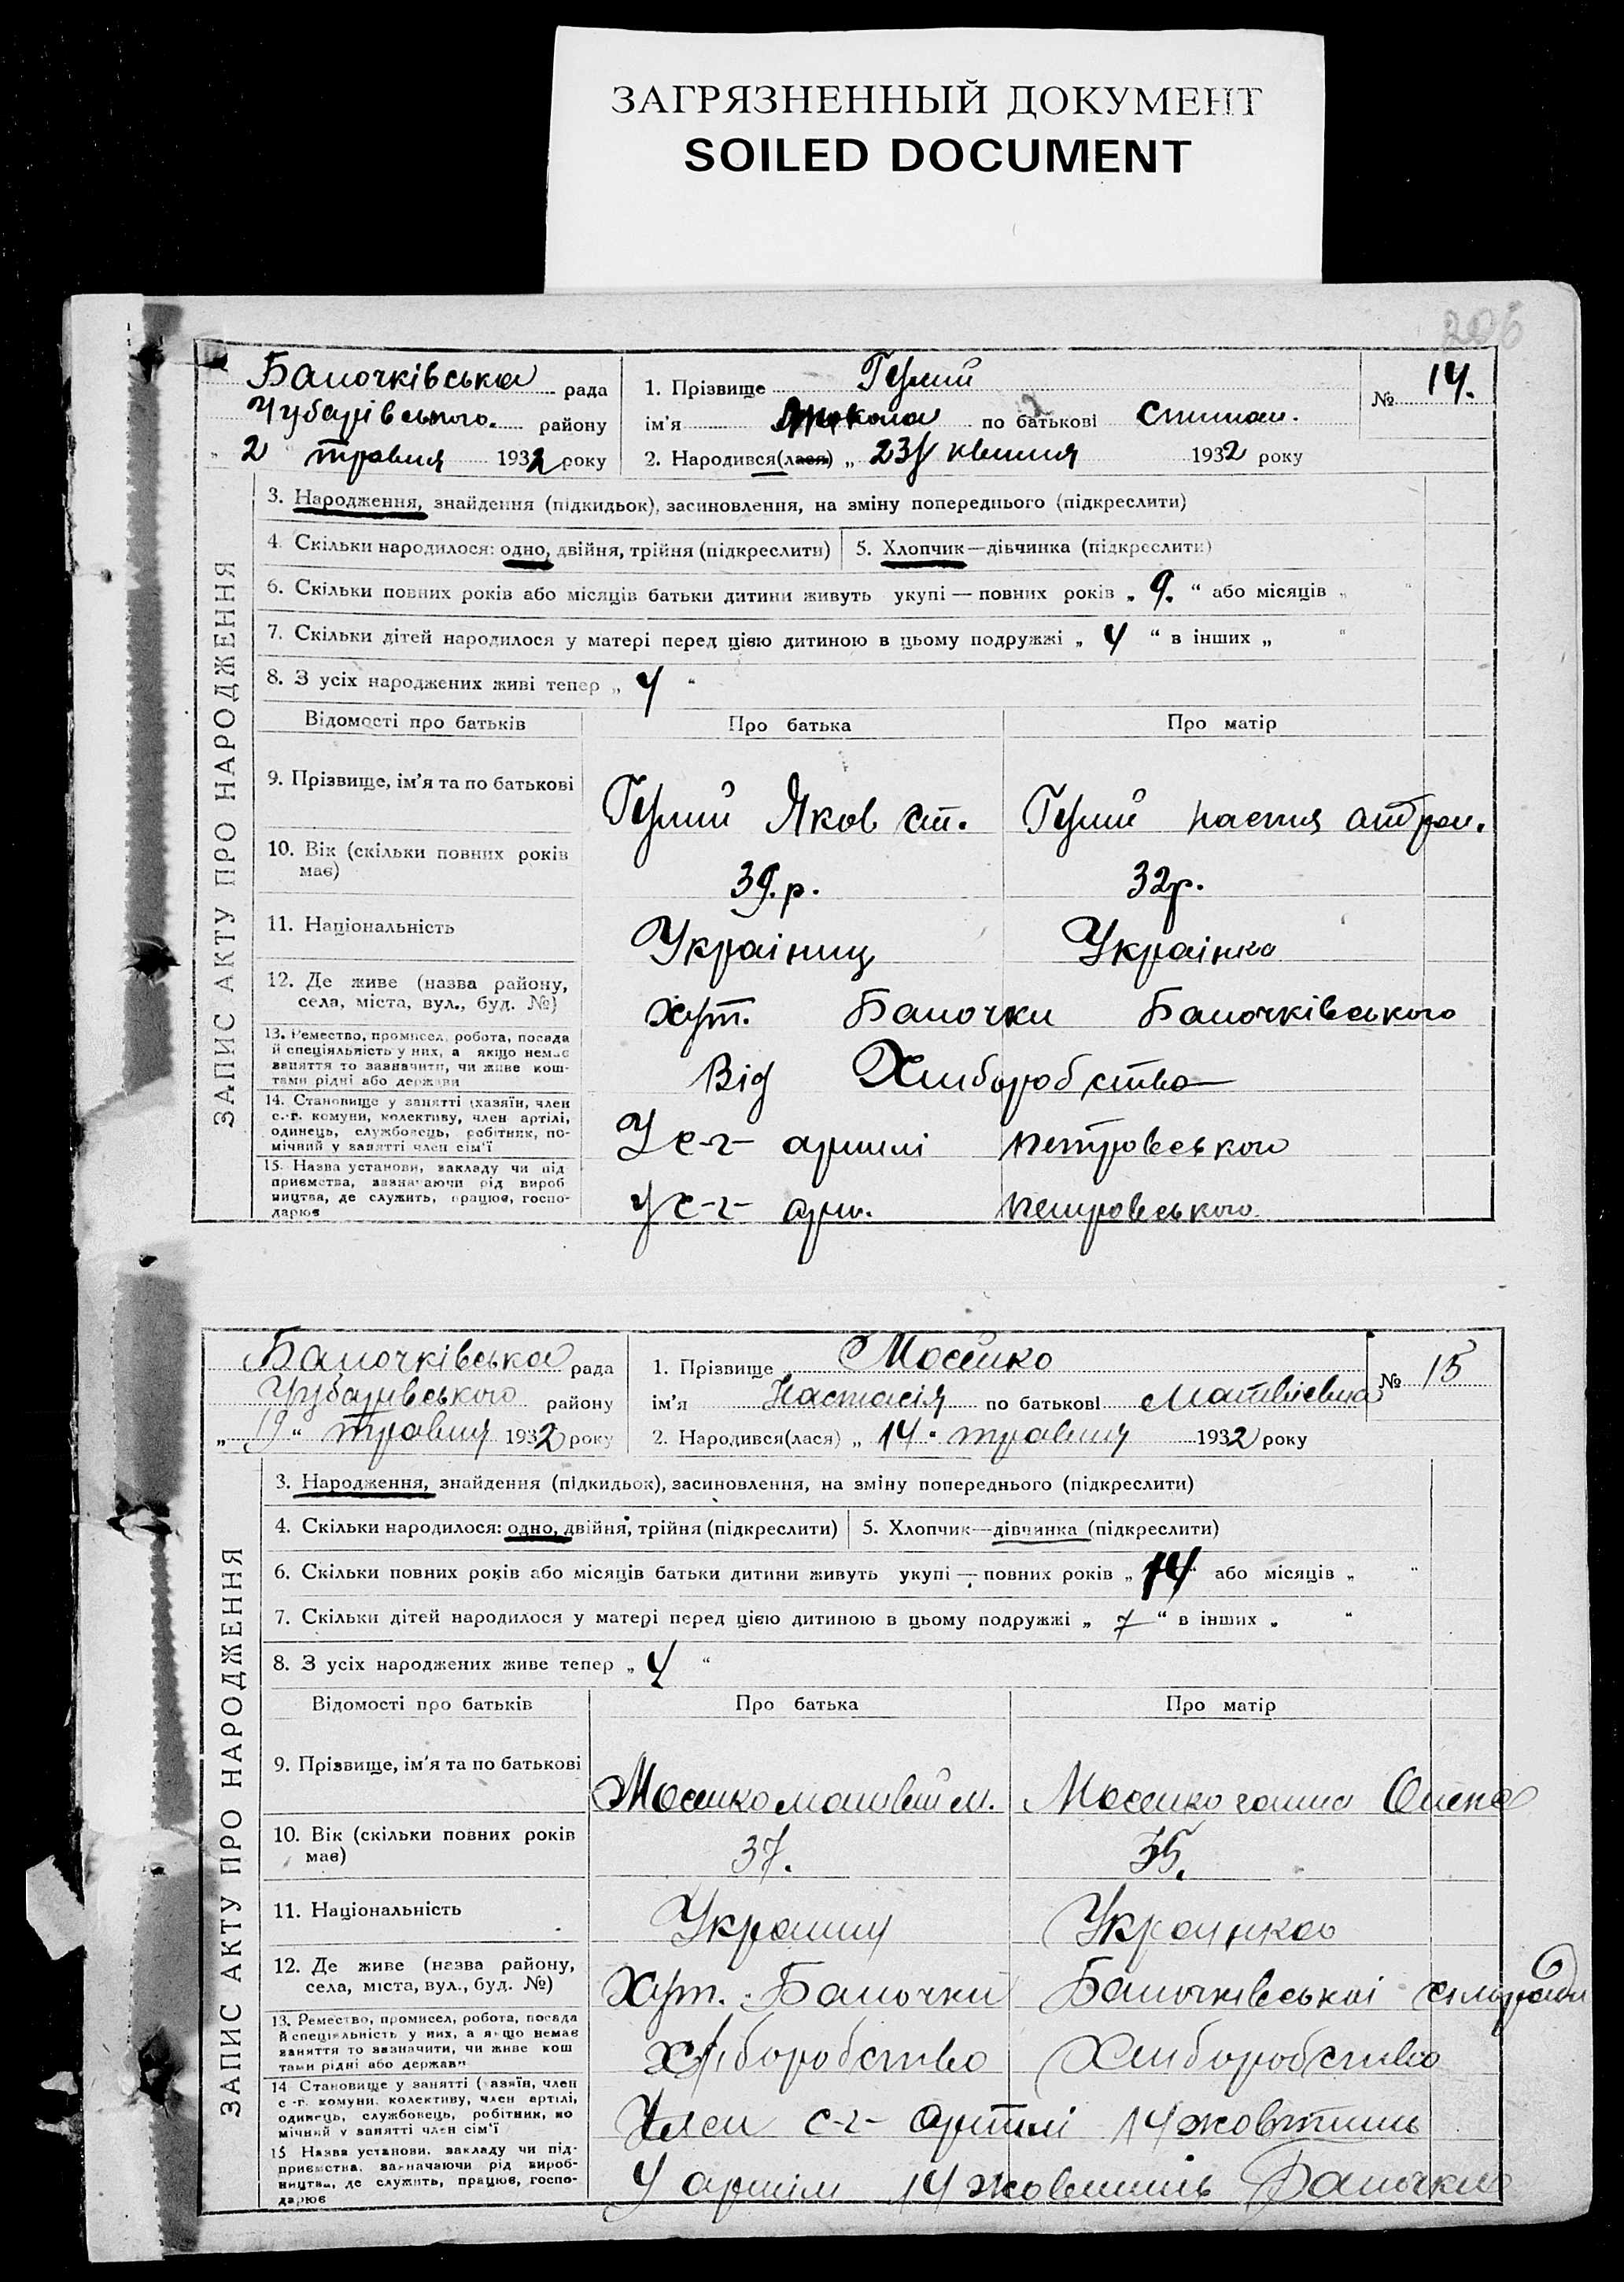 ЗАГРЯЗНЕННЫЙ ДОКУМЕНТ
SOILED DOCUMENT
206
ЗАПИС АКТУ ПРО НАРОДЖЕННЯ
Баночківська рада
Чубарівського району
„ 2 травня 1932 року
1. Прізвище
№ 14.
ім'я по батькові
2. Народився(лася) „ 23 квітня 1932 року
3. Народження, знайдення (підкидьок), засиновлення, на зміну попереднього (підкреслити)
4. Скільки народилося: одно, двійня, трійня (підкреслити) 5. Хлопчик—дівчинка (підкреслити)
6. Скільки повних років або місяців батьки дитини живуть укупі — повних років „ 9. “ або місяців „ “
7. Скільки дітей народилося у матері перед цією дитиною в цьому подружжі „ 4 “ в інших „ “
8. З усіх народжених живі тепер „ 4 “
Відомості про батьків Про батька Про матір
9. Прізвище, ім'я та по батькові
Яков ст. настя
10. Вік (скільки повних років має)
39.р. 32р.
11. Національність
Україниц Українка
12. Де живе (назва району, села, міста, вул., буд. №)
хут. Баночки Баночківського
13. Ремество, промисел, робота, посада й спеціяльність у них, а якщо немає заняття то зазначити, чи живе коштами рідні або держави
Від Хлиборобство
14. Становище у занятті (хазяїн, член с.-г. комуни, колективу, член артілі, одинець, службовець, робітник, помічний у занятті член сім'ї
У с-г- артилі петровського
15. Назва установи, закладу чи підприємства, зазначаючи рід виробництва, де служить, працює, господарює
у с-г- арт. петровського
ЗАПИС АКТУ ПРО НАРОДЖЕННЯ
Баночківська рада
Чубарівського району
„ 19 “ травня 1932 року
1. Прізвище Мосейко
№ 15
ім'я Настасія по батькові Матвієвна
2. Народився(лася) „ 14 “ травня 1932 року
3. Народження, знайдення (підкидьок), засиновлення, на зміну попереднього (підкреслити)
4. Скільки народилося: одно, двійня, трійня (підкреслити) 5. Хлопчик—дівчинка (підкреслити)
6. Скільки повних років або місяців батьки дитини живуть укупі — повних років „ 14 “ або місяців „ “
7. Скільки дітей народилося у матері перед цією дитиною в цьому подружжі „ 7 “ в інших „ “
8. З усіх народжених живе тепер „ 4 “
Відомості про батьків Про батька Про матір
9. Прізвище, ім'я та по батькові
Мосейко матвей м. Мосейко ганна
10. Вік (скільки повних років має)
37. 35.
11. Національність
Украинц Украинка
12. Де живе (назва району, села, міста, вул., буд. №)
Хут. Баночки Баночківської сілоради
13. Ремество, промисел, робота, посада й спеціяльність у них, а якщо немає заняття то зазначити, чи живе коштами рідні або держави
хлиборобство Хлиборобство
14. Становище у занятті (хазяїн, член с.-г. комуни, колективу, член артілі, одинець, службовець, робітник, помічний у занятті член сім'ї
Член с-г- артилі 14 жовтинь
15. Назва установи, закладу чи підприємства, зазначаючи рід виробництва, де служить, працює, господарює
У артіли 14 жовтинь Баночки